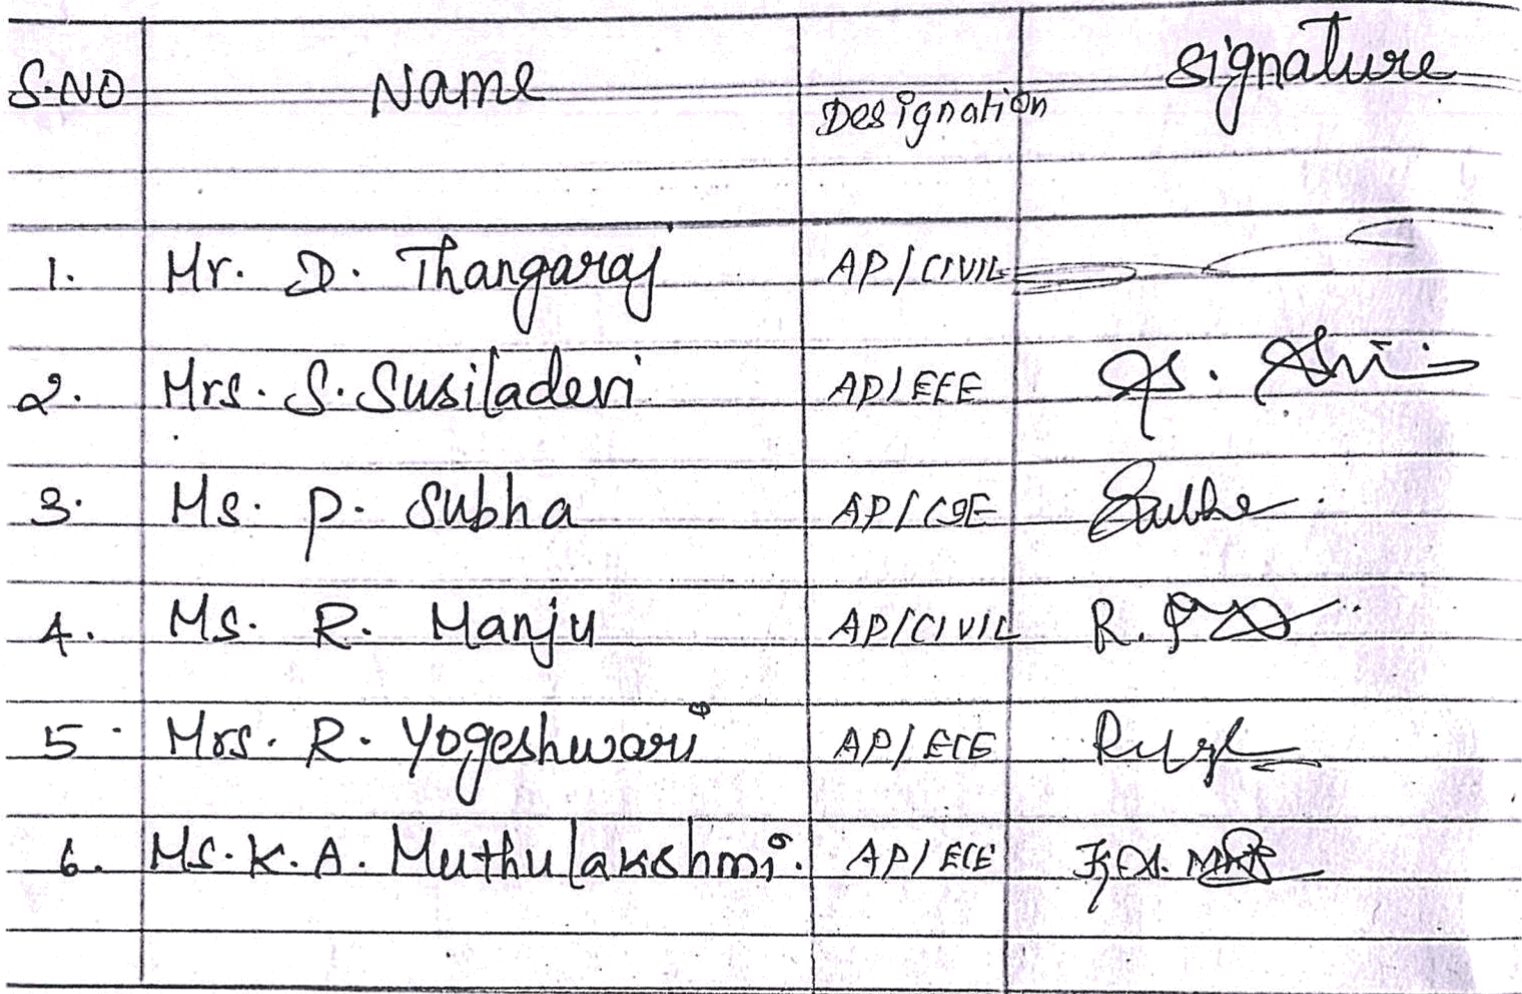 S.NO Name Designation Signature
1. Mr. D. Thangaraj AP/CIVIL
2. Mrs. S. Susiladevi AP/EEE
3. Ms. P. Subha AP/CSE Subha
4. Ms. R. Manju AP/CIVIL R.
5. Mrs. R. Yogeshwari AP/ECE
6. Ms. K. A. Muthulakshmi. AP/ECE